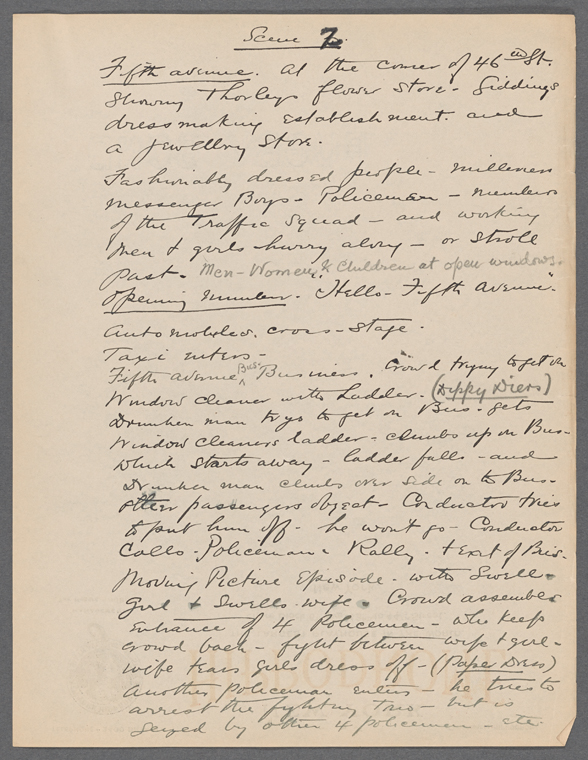 Scene 2
Fifth avenue. At the corner of 46th St.
Showing Thorleys flower store - Giddings
dressmaking establishment. and
a Jewellry Store.
Fashionably dressed people - milliners
messenger Boys - Policeman - members
of the Traffic Squad - and working
men & girls hurry along - or stroll
Past. Men - Women & Children at open windows.
Opening number. "Hello - Fifth Avenue".
Automobiles. cross - stage.
Taxi enters -
Fifth avenue Bus. Business. Crowd trying to get on
Window cleaner with Ladder. (Dippy Diers)
Drunken man trys to get on Bus - gets
Window cleaners ladder - climbs up on Bus -
which starts away - ladder falls - and
Drunken man climbs over side on to Bus -
other passengers object - Conductor tries
to put him off - he won't go - Conductor
Calls - Policeman - Rally. & Exit of Bus.
Moving Picture Episode. with Swell -
Girl & Swells wife. Crowd assembles
Entrance of 4 Policemen - who keep
crowd back - fight between wife & girl -
wife tears girls dress off - (Paper Dress)
Another policeman enters - he tries to
arrest the fighting Trio - but is
Seized by other 4 policemen - etc